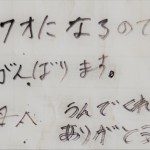 クオになるので
がんばります。
母へ
うんでくれ
ありがとう